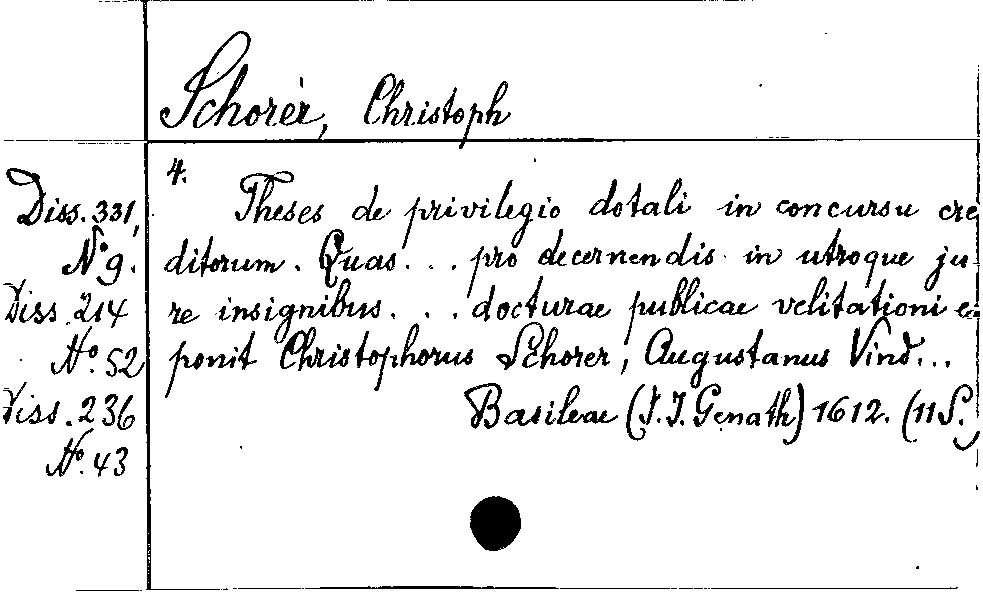 Schorer, Christoph
4.
Diss. 331,
No 9.
Diss. 214
No. 52
Diss. 236
No. 43
Theses de privilegio dotali in concursu cre
ditorum. Quas... pro decernendis in utroque ju
re insignibus... docturae publicae velitationi ex
ponit Christophorus Schorer, Augustanus Vind...
Basileae (J. J. Genath) 1612. (11 S.)